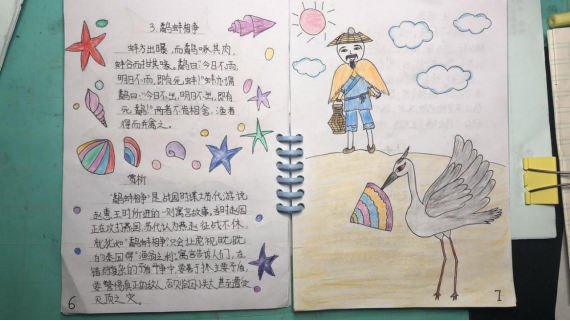 3.鹬蚌相争
蚌方出曝,而鹬啄其肉,
蚌合而拑其喙。鹬曰:“今日不雨,
明日不雨,即有死蚌!”蚌亦谓
鹬曰:“今日不出,明日不出,即有
死鹬!”两者不肯相舍,渔者
得而并禽之。
赏析
“鹬蚌相争”是战国时谋士苏代游说
赵惠王时所讲的一则寓言故事。当时赵国
正在攻打燕国,苏代认为燕赵征战不休,
就犹如“鹬蚌相争”只会让虎视眈眈
的秦国得“渔翁之利”。寓言告诉人们,在
错综复杂的矛盾斗争中,要善于抓主要矛盾,
要警惕真正的敌人,否则
灭顶之灾。
6
7